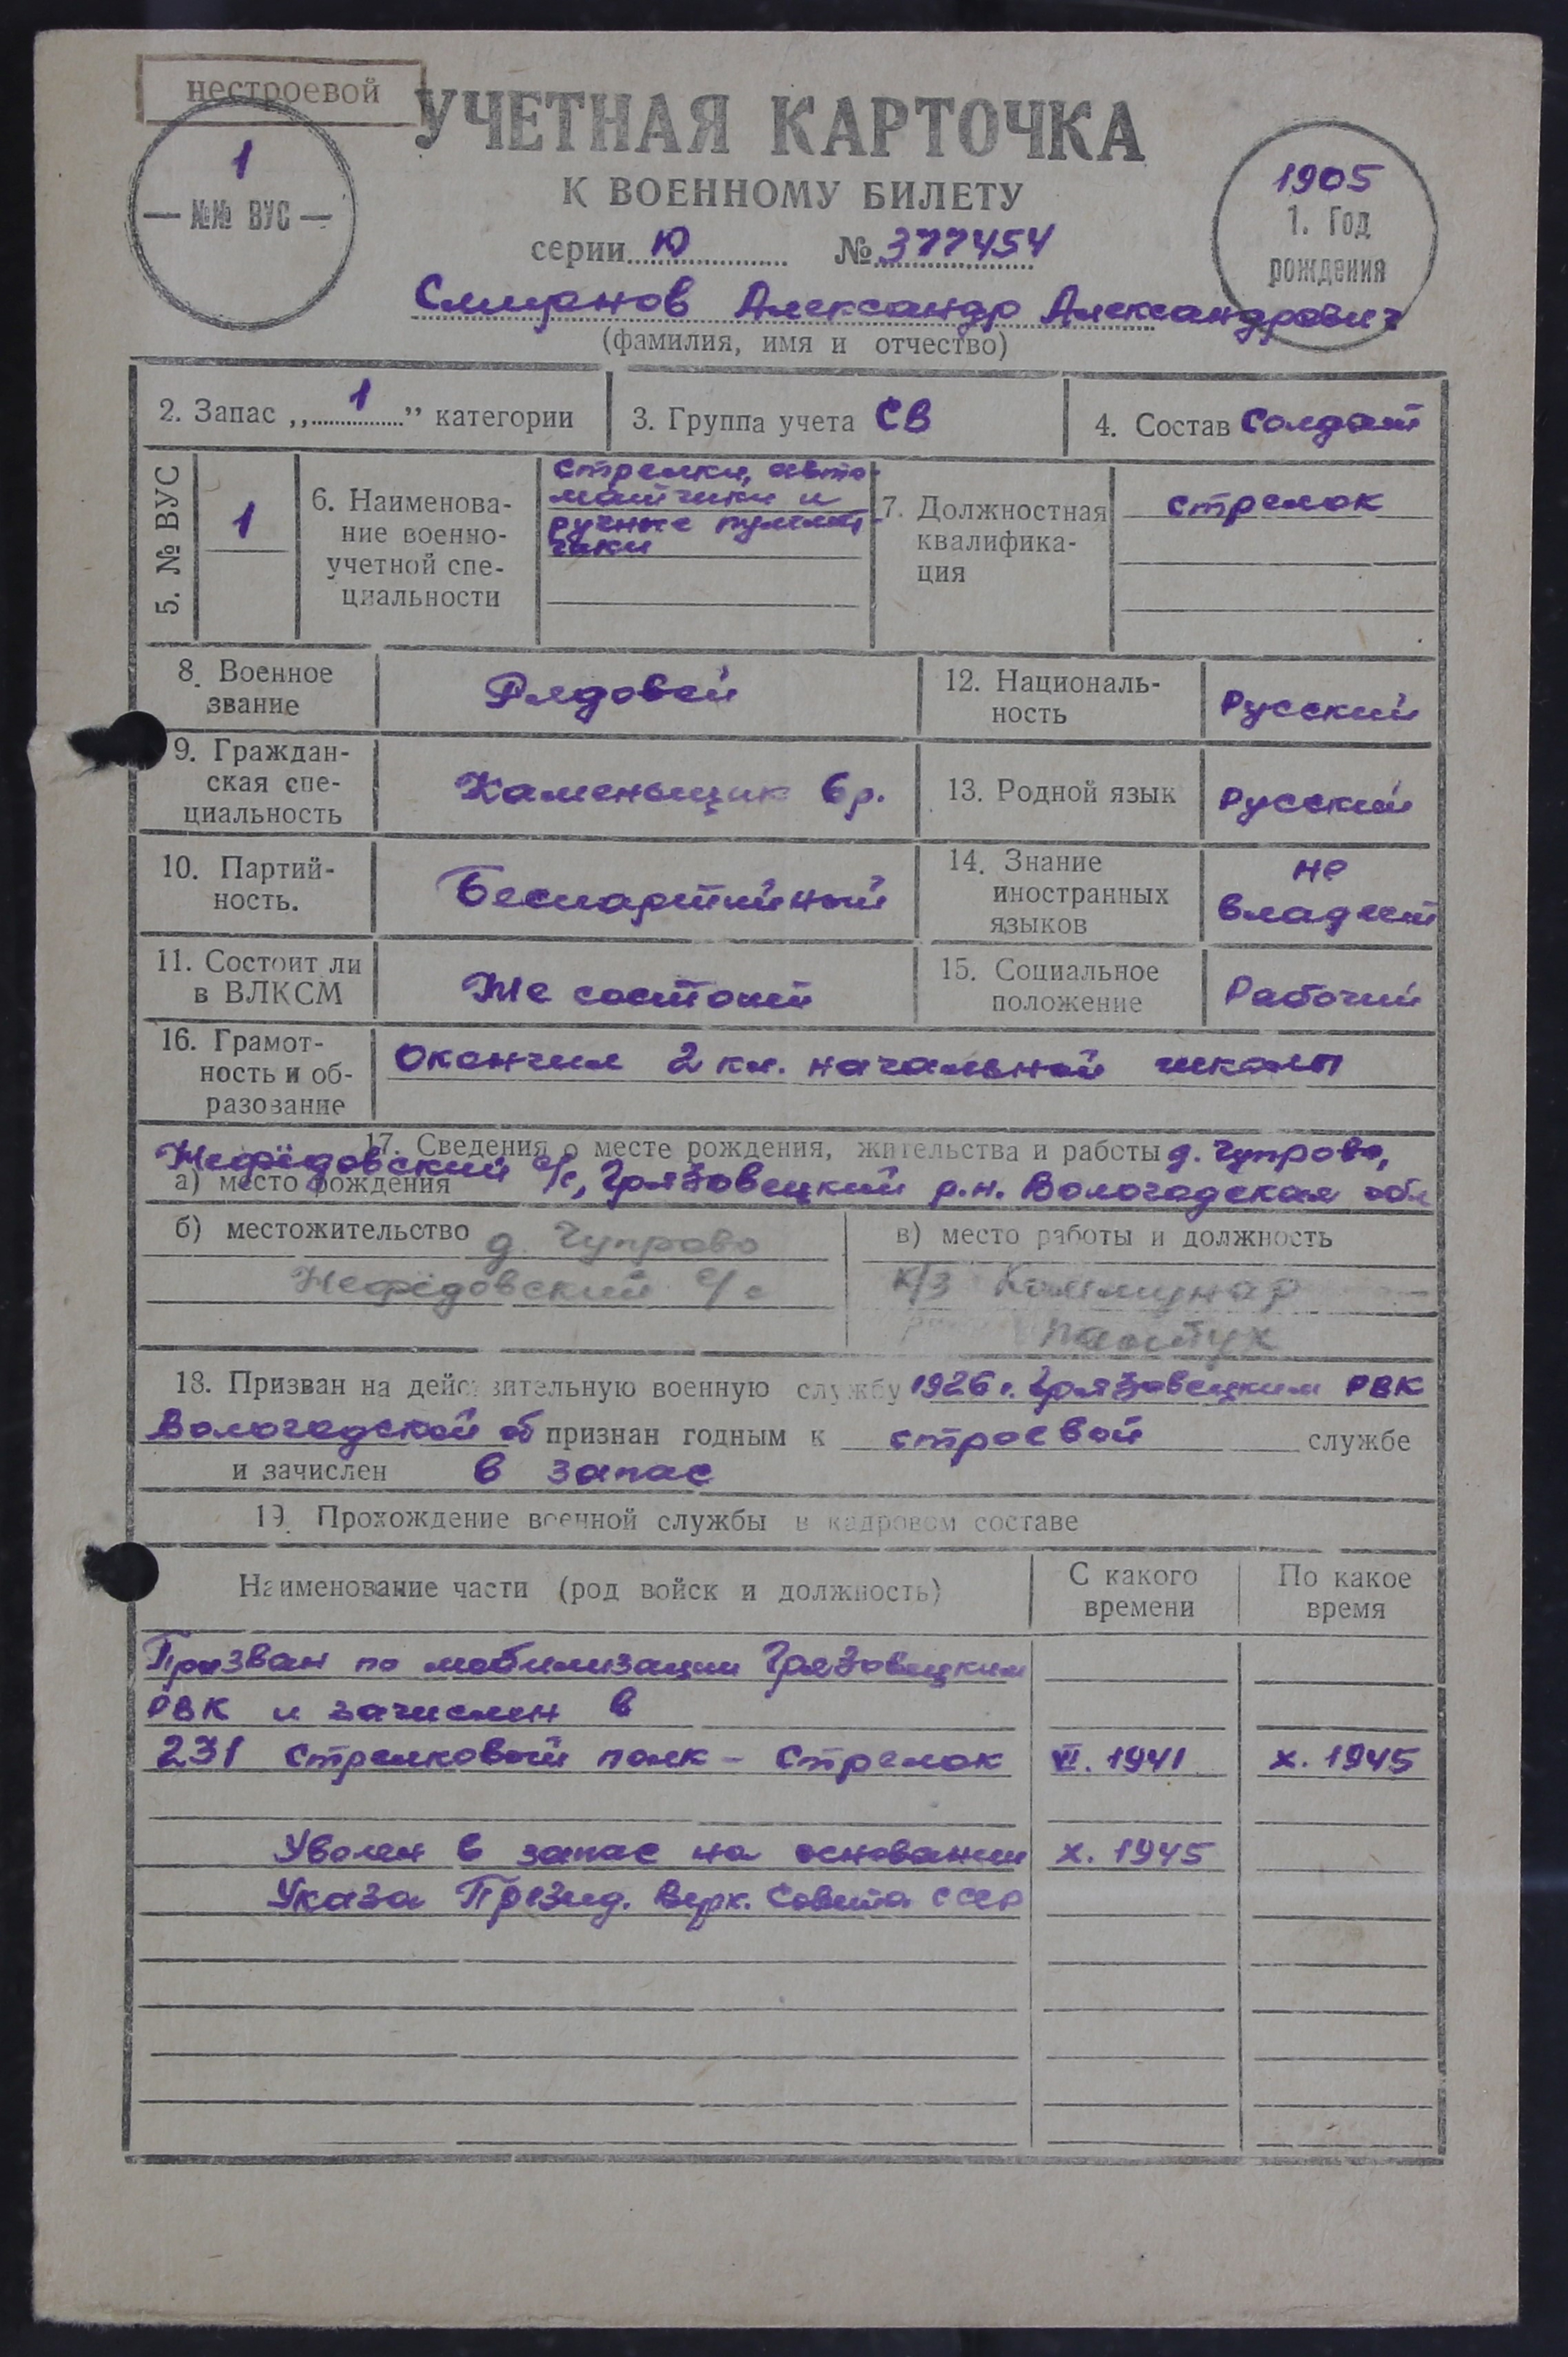 нестроевой
УЧЕТНАЯ КАРТОЧКА
К ВОЕННОМУ БИЛЕТУ
1
— №№ ВУС —
1905
1. Год
рождения
серии Ю № 377454
Александр Александрович
(фамилия, имя и отчество)
2. Запас „1" категории
3. Группа учета СВ
4. Состав Солдат
5. № ВУС
1
6. Наименова-
ние военно-
учетной спе-
циальности
Стрелки, авто-
матчики и
ручные пулемет-
чики
7. Должностная
квалифика-
ция
стрелок
8. Военное
звание
Рядовой
12. Националь-
ность
Русский
9. Граждан-
ская спе-
циальность
Каменьщик 6р.
13. Родной язык
Русский
10. Партий-
ность.
Беспартийный
14. Знание
иностранных
языков
не
владеет
11. Состоит ли
в ВЛКСМ
Не состоит
15. Социальное
положение
Рабочий
16. Грамот-
ность и об-
разование
Окончил 2 кл. начальной школы
17. Сведения о месте рождения, жительства и работы д. Чупрово,
Нефёдовский с/с, Грязовецкий р.н. Вологодская обл
а) место рождения
б) местожительство д. Чупрово
Нефёдовский с/с
в) место работы и должность
к/з Коммунар
пастух
18. Призван на действительную военную службу 1926 г. Грязовецким РВК
Вологодской об признан годным к строевой службе
и зачислен в запас
19. Прохождение военной службы в кадровом составе
Наименование части (род войск и должность)
С какого
времени
По какое
время
Призван по мобилизации Грязовецким
РВК и зачислен в
231 стрелковый полк - Стрелок VI. 1941 X. 1945
Уволен в запас на основании X. 1945
Указа Презид. Верх. Совета СССР